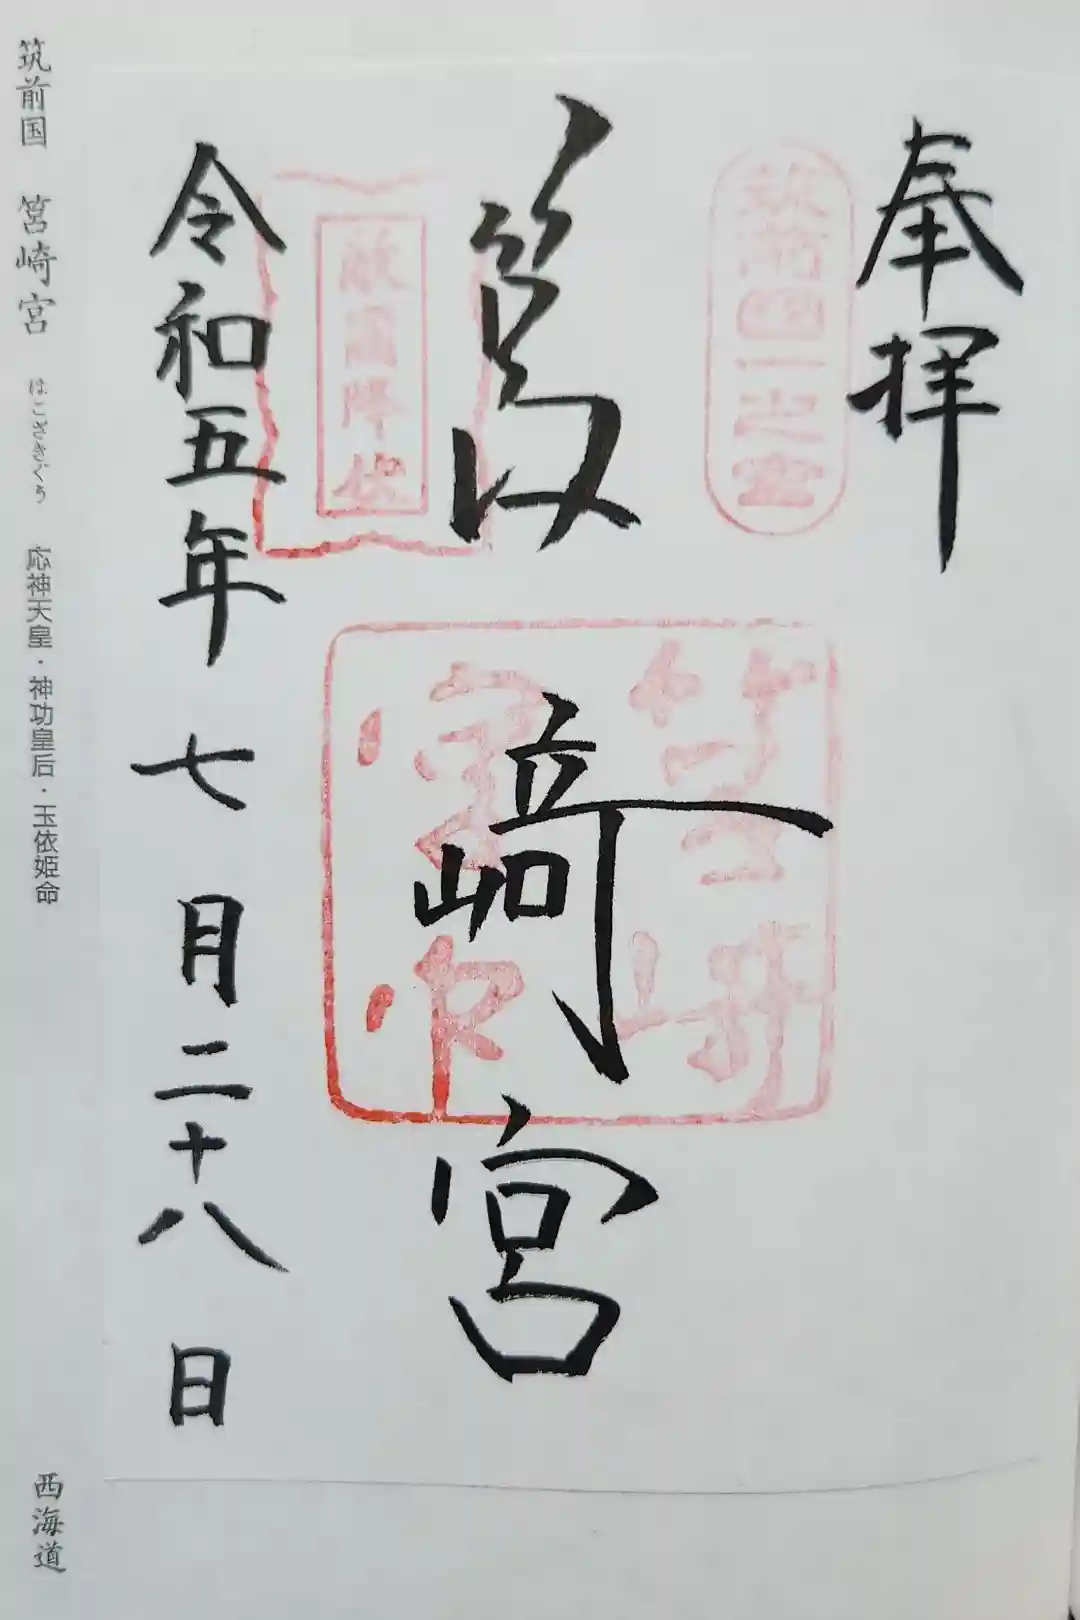 奉拝
筑前国一之宮
筥崎宮
敵國降伏
筥崎宮印
令和五年七月二十八日
筑前国 筥崎宮 はこざきぐう 応神天皇・神功皇后・玉依姫命
西海道